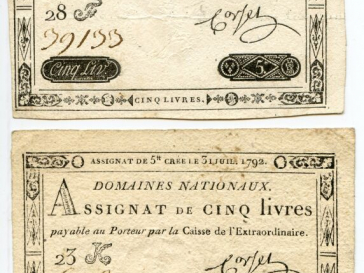 28
39133
Corsel
Cinq Liv.
5
CINQ LIVRES.
ASSIGNAT DE 5ᵗᵗ CRÉÉ LE 31 JUILL. 1792.
DOMAINES NATIONAUX.
ASSIGNAT DE CINQ livres
payable au Porteur par la Caisse de l'Extraordinaire.
23 K
Corsel